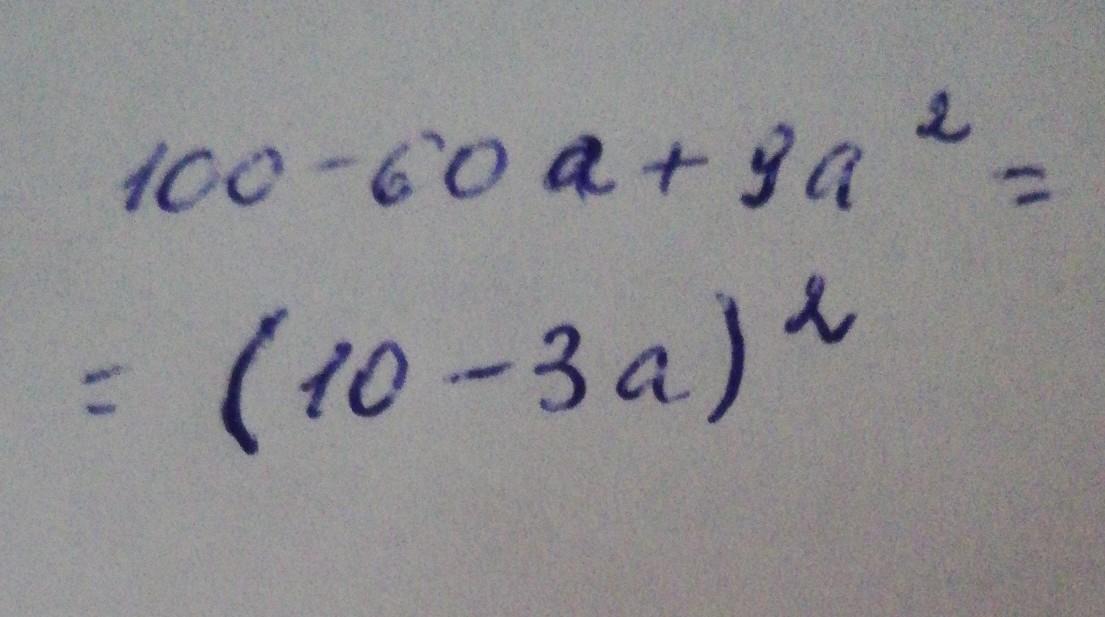 100 - 60a + 9a² =
= (10 - 3a)²